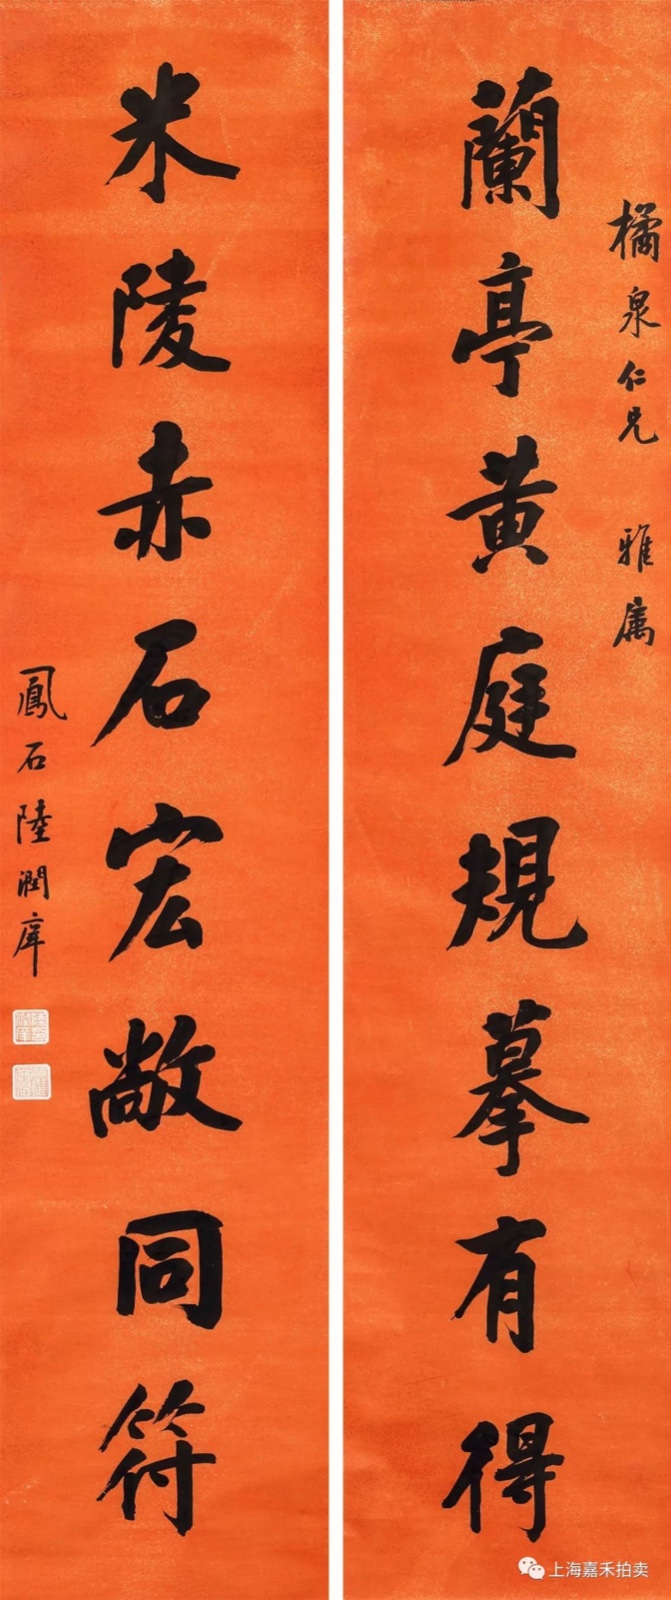 橘泉仁兄 雅屬
蘭亭黃庭規摹有得
米陵赤石宏敞同符
鳳石陸潤庠
上海嘉禾拍卖